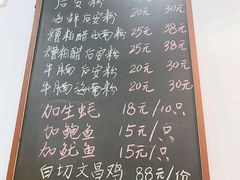 后安粉 20元 30元
海鲜后安粉 25元 38元
糟粕醋海南粉 25元 38元
糟粕醋后安粉
牛腩后安粉 20元 30元
牛腩海南粉 20元 30元
加生蚝 18元/10只
加鲍鱼 15元/只
加鱿鱼 15元/只
白切文昌鸡 88元/份